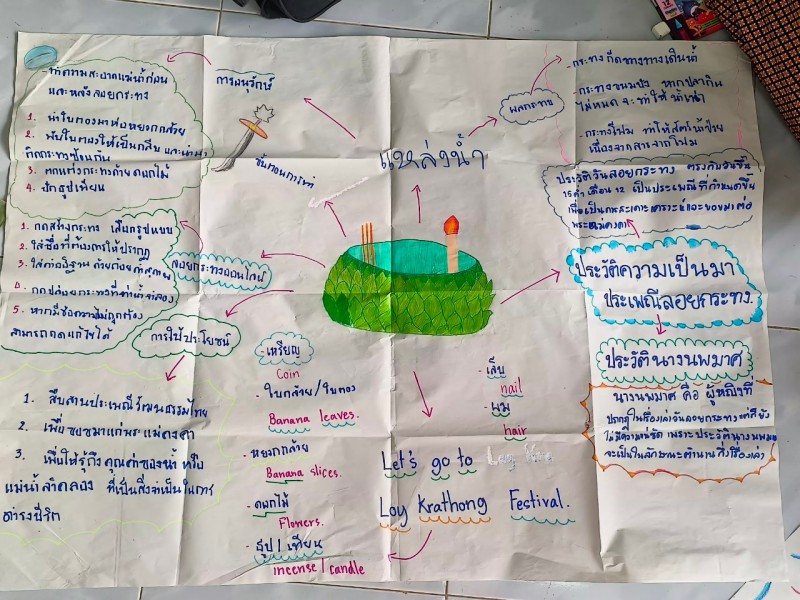 ทำความสะอาดแม่น้ำก่อน
และหลังลอยกระทง
1. นำใบตองมาห่อหยวกกล้วย
2. พับใบตองให้เป็นกลีบ และนำมา
ติดกระทงซ้อนกัน
3. ตกแต่งกระทงด้วยดอกไม้
4. ปักธูปเทียน
การอนุรักษ์
ขั้นตอนการทำ
แหล่งน้ำ
ผลกระทบ
- กระทง กีดขวางทางเดินน้ำ
- กระทงขนมปัง หากปลากิน
ไม่หมด จะทำให้น้ำเน่า
- กระทงโฟม ทำให้สัตว์น้ำป่วย
เนื่องจากสารจากโฟม
ประวัติวันลอยกระทง ตรงกับวันขึ้น
15 ค่ำ เดือน 12 เป็นประเพณีที่กำหนดขึ้น
เพื่อเป็นการสะเดาะเคราะห์และขอขมาต่อ
พระแม่คงคา
ประวัติความเป็นมา
ประเพณีลอยกระทง.
ประวัตินางนพมาศ
นางนพมาศ คือ ผู้หญิงที่
ไม่มีความแน่ชัด เพราะประวัตินางนพมาศ
จะเป็นในลักษณะตำนานสิ่งที่บอกเล่า
ลอยกระทงออนไลน์
1. กดสร้างกระทง เลือกรูปแบบ
2. ใส่ชื่อที่ต้องการให้ปรากฏ
3. ใส่คำอธิฐาน
4. กดปล่อยกระทงที่
5. หากมีข้อความไม่ถูกต้อง
สามารถกดแก้ไขได้
การใช้ประโยชน์
1. สืบสานประเพณีวัฒนธรรมไทย
2. เพื่อขอขมาแก่พระแม่คงคา
3. เพื่อให้รู้ถึงคุณค่าของน้ำ หรือ
แม่น้ำลำคลอง ที่เป็นสิ่งจำเป็นในการ
ดำรงชีวิต
- เหรียญ
Coin
- ใบกล้วย/ใบตอง
Banana leaves.
- หยวกกล้วย
Banana slices.
- ดอกไม้
Flowers.
- ธูป / เทียน
incense / candle
- เล็บ
nail
- ผม
hair
Let's go to
Loy Krathong Festival.